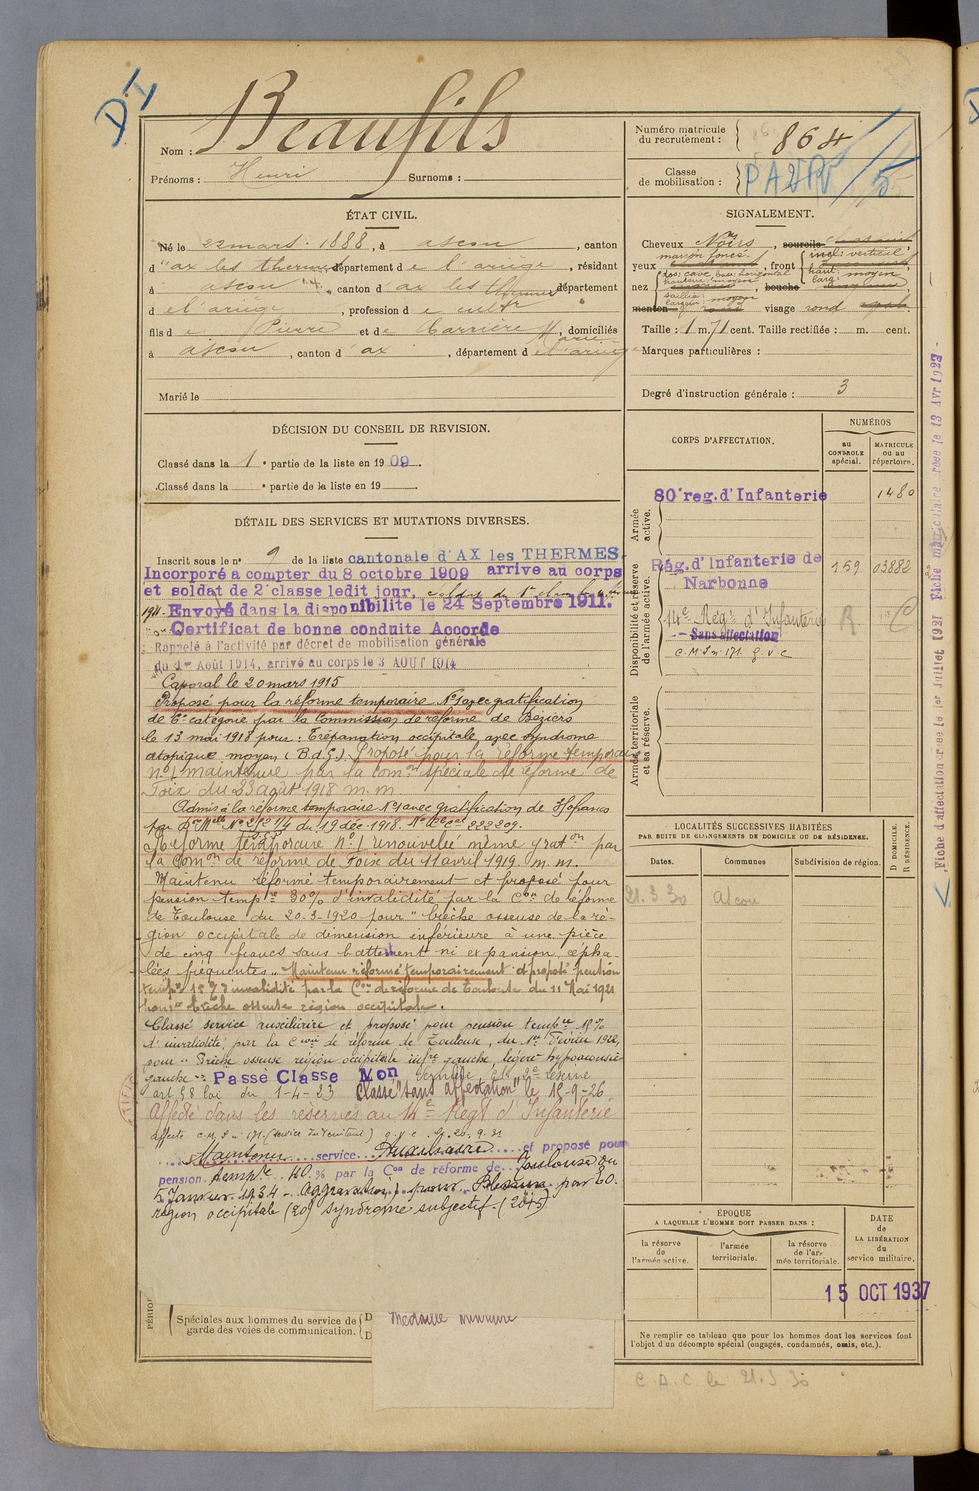 D1
Nom : Beaufils
Prénoms : Henri Surnoms :
Numéro matricule du recrutement : 864
Classe de mobilisation :
ÉTAT CIVIL.
Né le 22 mars 1888, à ascou, canton
d'ax les thermes département de l'ariège, résidant
à ascou, canton d'ax les thermes département
d el'ariège, profession de cultr
fils de Pierre et de Carrière Marie, domiciliés
à ascou, canton d'ax, département de l'ariège
Marié le
SIGNALEMENT.
Cheveux Noirs, sourcils
yeux marron foncé, front incl: vertical haut: moyen larg: moyen
nez dos: cave, bas: horizontal hauteur: moyen saillie: moyen largeur: moyen, bouche
menton visage rond
Taille : 1 m. 71 cent. Taille rectifiée : m. cent.
Marques particulières :
Degré d'instruction générale : 3
DÉCISION DU CONSEIL DE REVISION.
Classé dans la 1e partie de la liste en 1909.
Classé dans la e partie de la liste en 19
DÉTAIL DES SERVICES ET MUTATIONS DIVERSES.
Inscrit sous le n° 9 de la liste cantonale d'AX les THERMES.
Incorporé a compter du 8 octobre 1909 arrive au corps
et soldat de 2e classe ledit jour,
1911. Envoyé dans la disponibilite le 24 Septembre 1911.
Certificat de bonne conduite Accorde
Rappelé à l'activité par décret de mobilisation générale
du 1er Août 1914, arrivé au corps le 3 AOUT 1914
Caporal le 20 mars 1915
Proposé pour la réforme temporaire N°1 avec gratification
de 6e catégorie par la Commission de réforme de Béziers
le 13 mai 1918 pour : Trépanation occipitale avec syndrome
atopique moyen (B.d.G.) Proposé pour la réforme temporaire
n°1 maintenue par la comon spéciale de réforme de
Foix du 23 août 1918 m.m.
Admis à la réforme temporaire N°1 avec gratification de
par Don Melle du 19 déc. 1918. 222209.
Réforme temporaire n°1 renouvelée même graton par
la Comon de réforme de Foix du 11 avril 1919. m.m.
Maintenu réformé temporairement et proposé pour
pension tempre 30% d'invalidité par la Con de réforme
de Toulouse du 20-3-1920 pour "brèche osseuse de la ré-
gion occipitale de dimension inférieure à une pièce
de cinq francs sans battement ni expansion, cépha-
lées fréquentes". Maintenu réformé temporairement et proposé pension
tempre 15% d'invalidité par la Con de réforme de Toulouse du 11 Mai 1921
pour brèche osseuse région occipitale.
Classé service auxiliaire et proposé pour pension tempre 15%
d'invalidité, par la Comon de réforme de Toulouse, du 1er Février 1922,
pour "Brèche osseuse région occipitale infre gauche, légère hypoacousie
gauche". Passé Classe Mon 2e réserve
art 58 loi du 1-4-23 Classé "sans affectation" le 15-9-26
Affecté dans les réserves au 14e Régt d'Infanterie
affecté C.M.I n° 171 (service Territorial) g.v.c. 20.9.31
Maintenu service Auxiliaire et proposé pour
pension tempre 40 % par la Con de réforme de Toulouse du
5 Janvier 1934 - Aggravation) pour
région occipitale (20) syndrome subjectif.
CORPS D'AFFECTATION.
NUMÉROS
au CONTROLE spécial.
MATRICULE ou au répertoire.
Armée active.
80e reg. d'Infanterie 1480
Disponibilité et réserve de l'armée active.
Rég. d'Infanterie de Narbonne 159 03882
14e Régt d'Infanterie R C
Sans affectation
C.M.I n° 171 g.v.c
Armée territoriale et sa réserve.
LOCALITÉS SUCCESSIVES HABITÉES
PAR SUITE DE CHANGEMENTS DE DOMICILE OU DE RÉSIDENCE.
Dates. Communes Subdivision de région. D DOMICILE. R RÉSIDENCE.
21.3.30 Ascou
ÉPOQUE
A LAQUELLE L'HOMME DOIT PASSER DANS :
la réserve de l'armée active.
l'armée territoriale.
la réserve de l'armée territoriale.
DATE de LA LIBÉRATION du service militaire.
15 OCT 1937
Ne remplir ce tableau que pour les hommes dont les services font
l'objet d'un décompte spécial (engagés, condamnés, omis, etc.).
Spéciales aux hommes du service de
garde des voies de communication.
Médaille militaire
C.A.C. le 21.3.30
Fiche d'affectation créée le 1er Juillet 1921 Fiche matriculaire créée le 13 Avr 1923